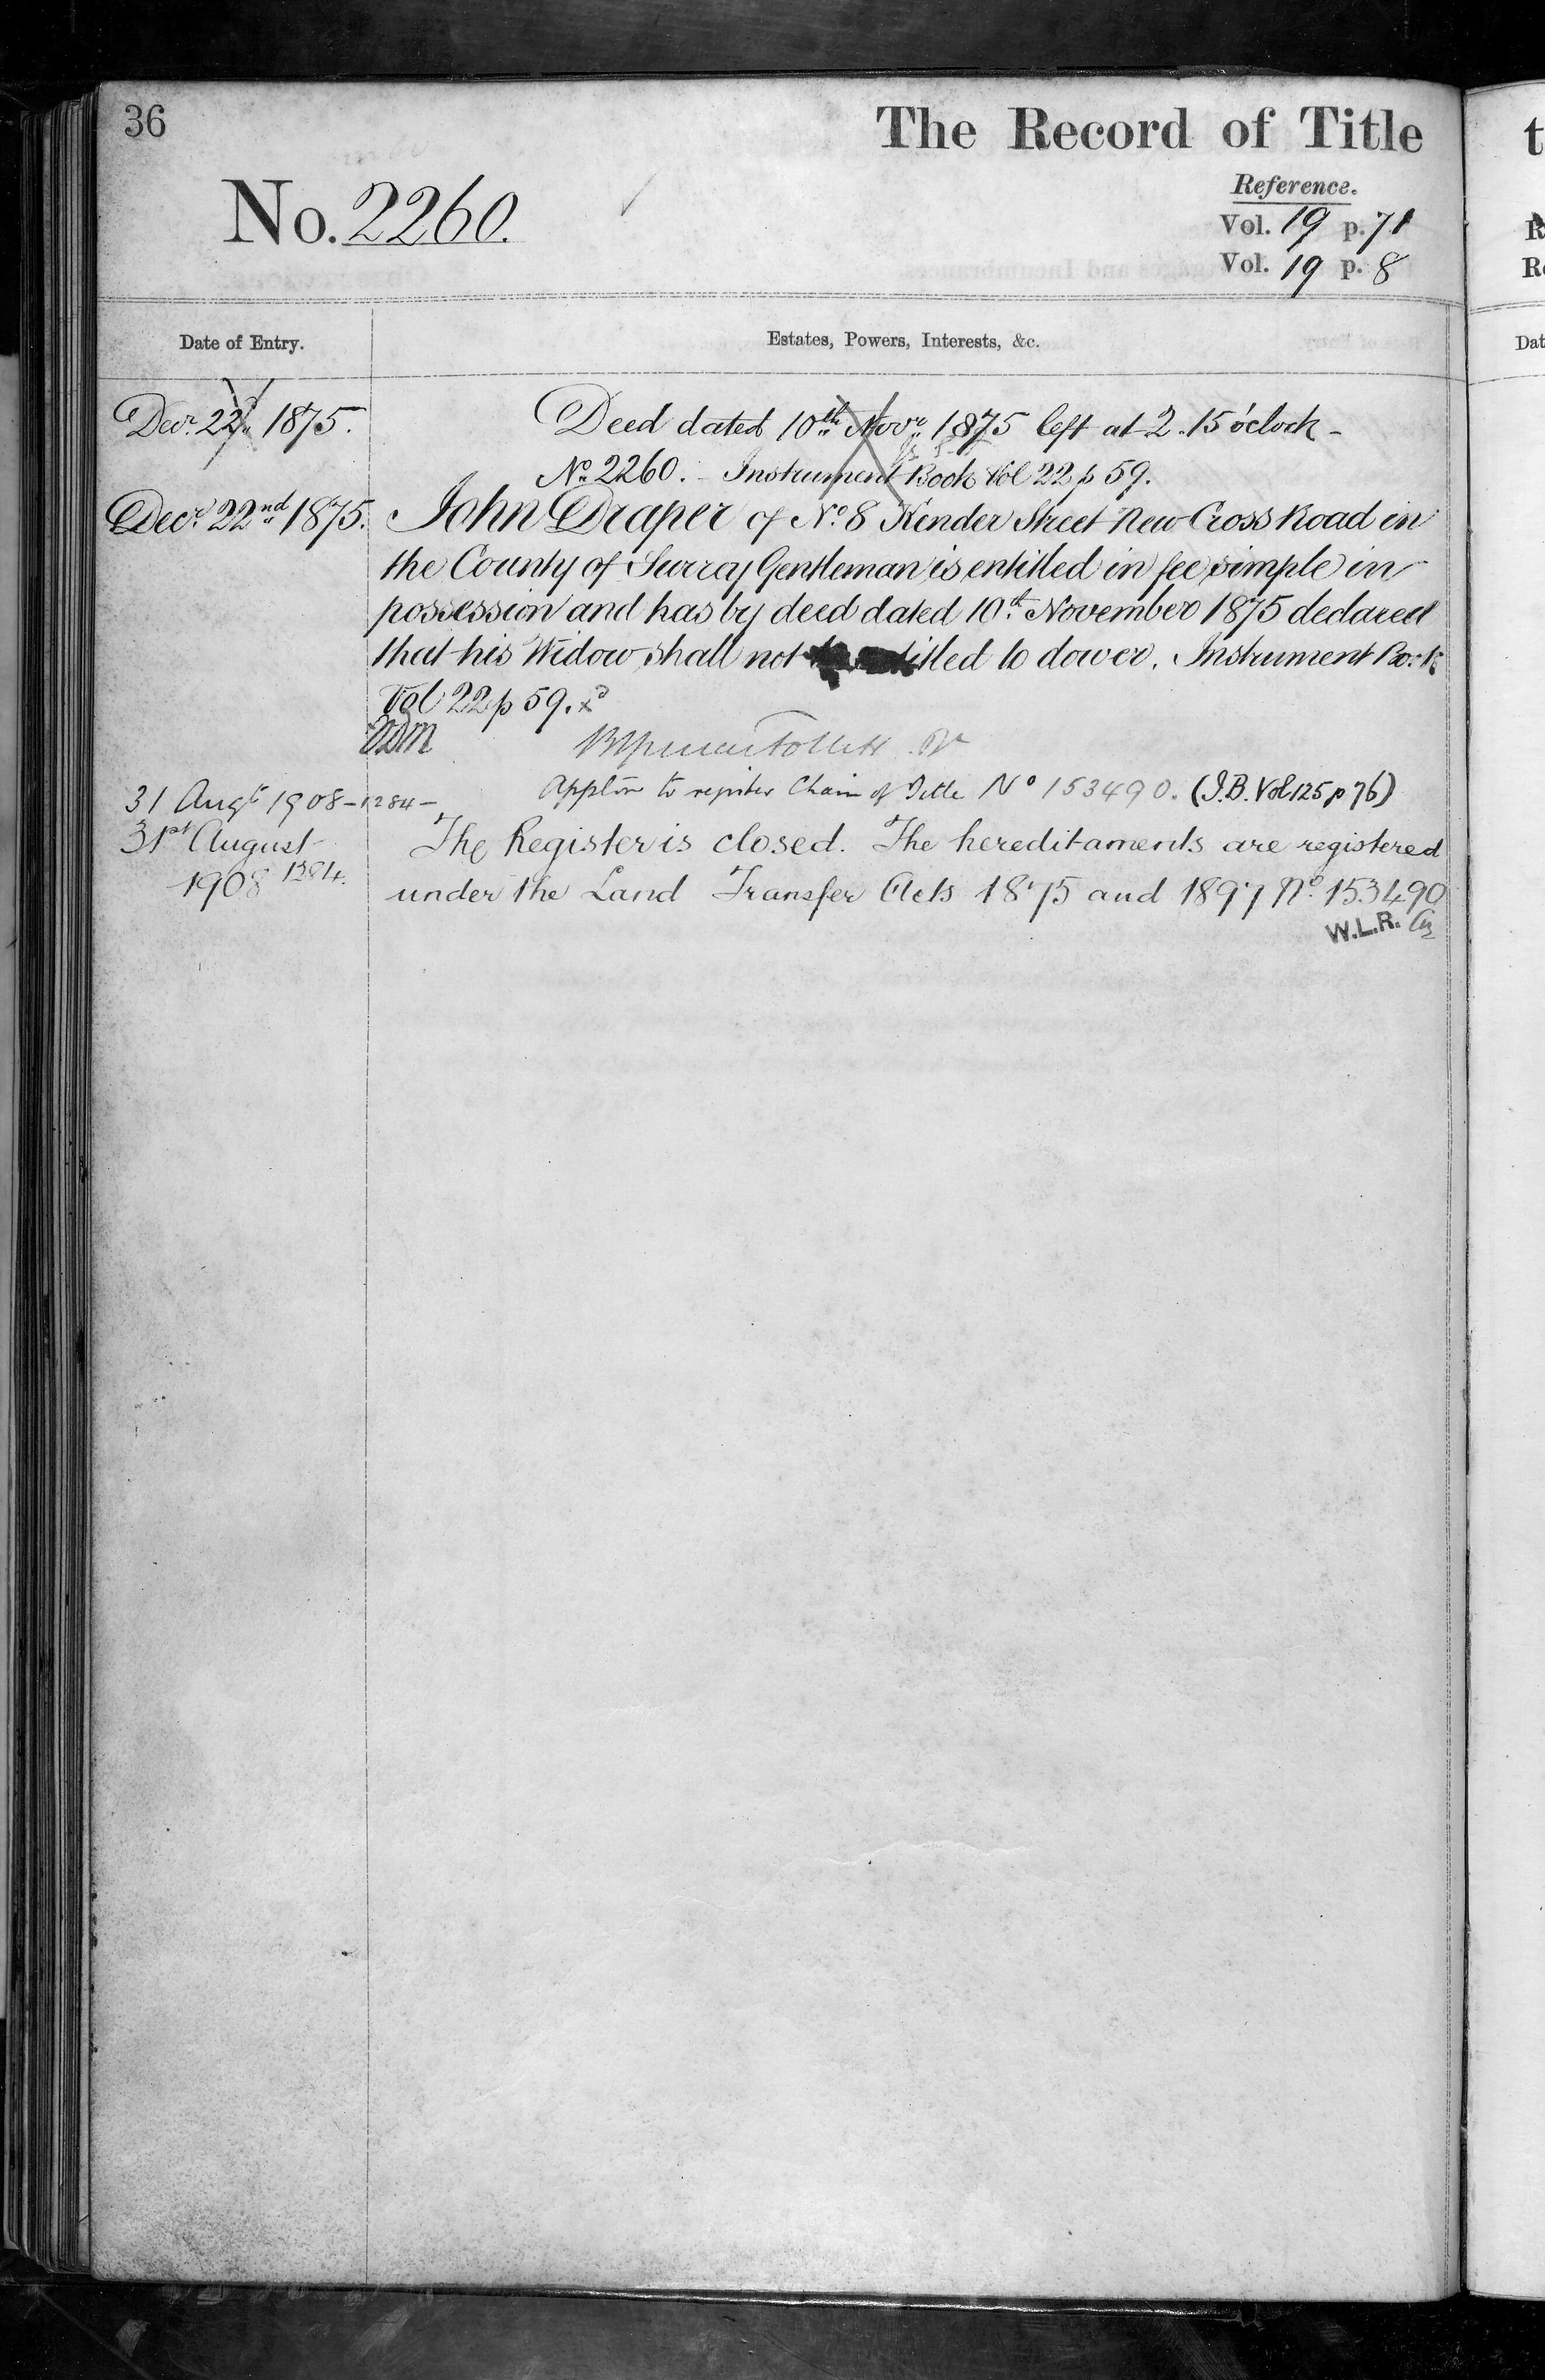 36
The Record of Title
No. 2260.
Reference.
Vol. 19 p. 71
Vol. 19 p. 8
Date of Entry.
Estates, Powers, Interests, &c.
Decr. 22d 1875.
Deed dated 10th Novr. 1875 left at 2.15 o'clock –
No. 2260. – Instrument Book Vol 22 p 59.
Decr. 22nd 1875.
John Draper of No. 8 Kender Street New Cross Road in
the County of Surrey Gentleman is entitled in fee simple in
possession and has by deed dated 10th November 1875 declared
that his Widow shall not be entitled to dower. Instrument Book
Vol 22 p 59.
31 Augt 1908 – 1284 –
Appl'on to register Chain of Title No 153490. (I.B. Vol 125 p 76)
31st August
1908 1284.
The Register is closed. The hereditaments are registered
under the Land Transfer Acts 1875 and 1897 No. 153490
W.L.R.
t
R
Dat